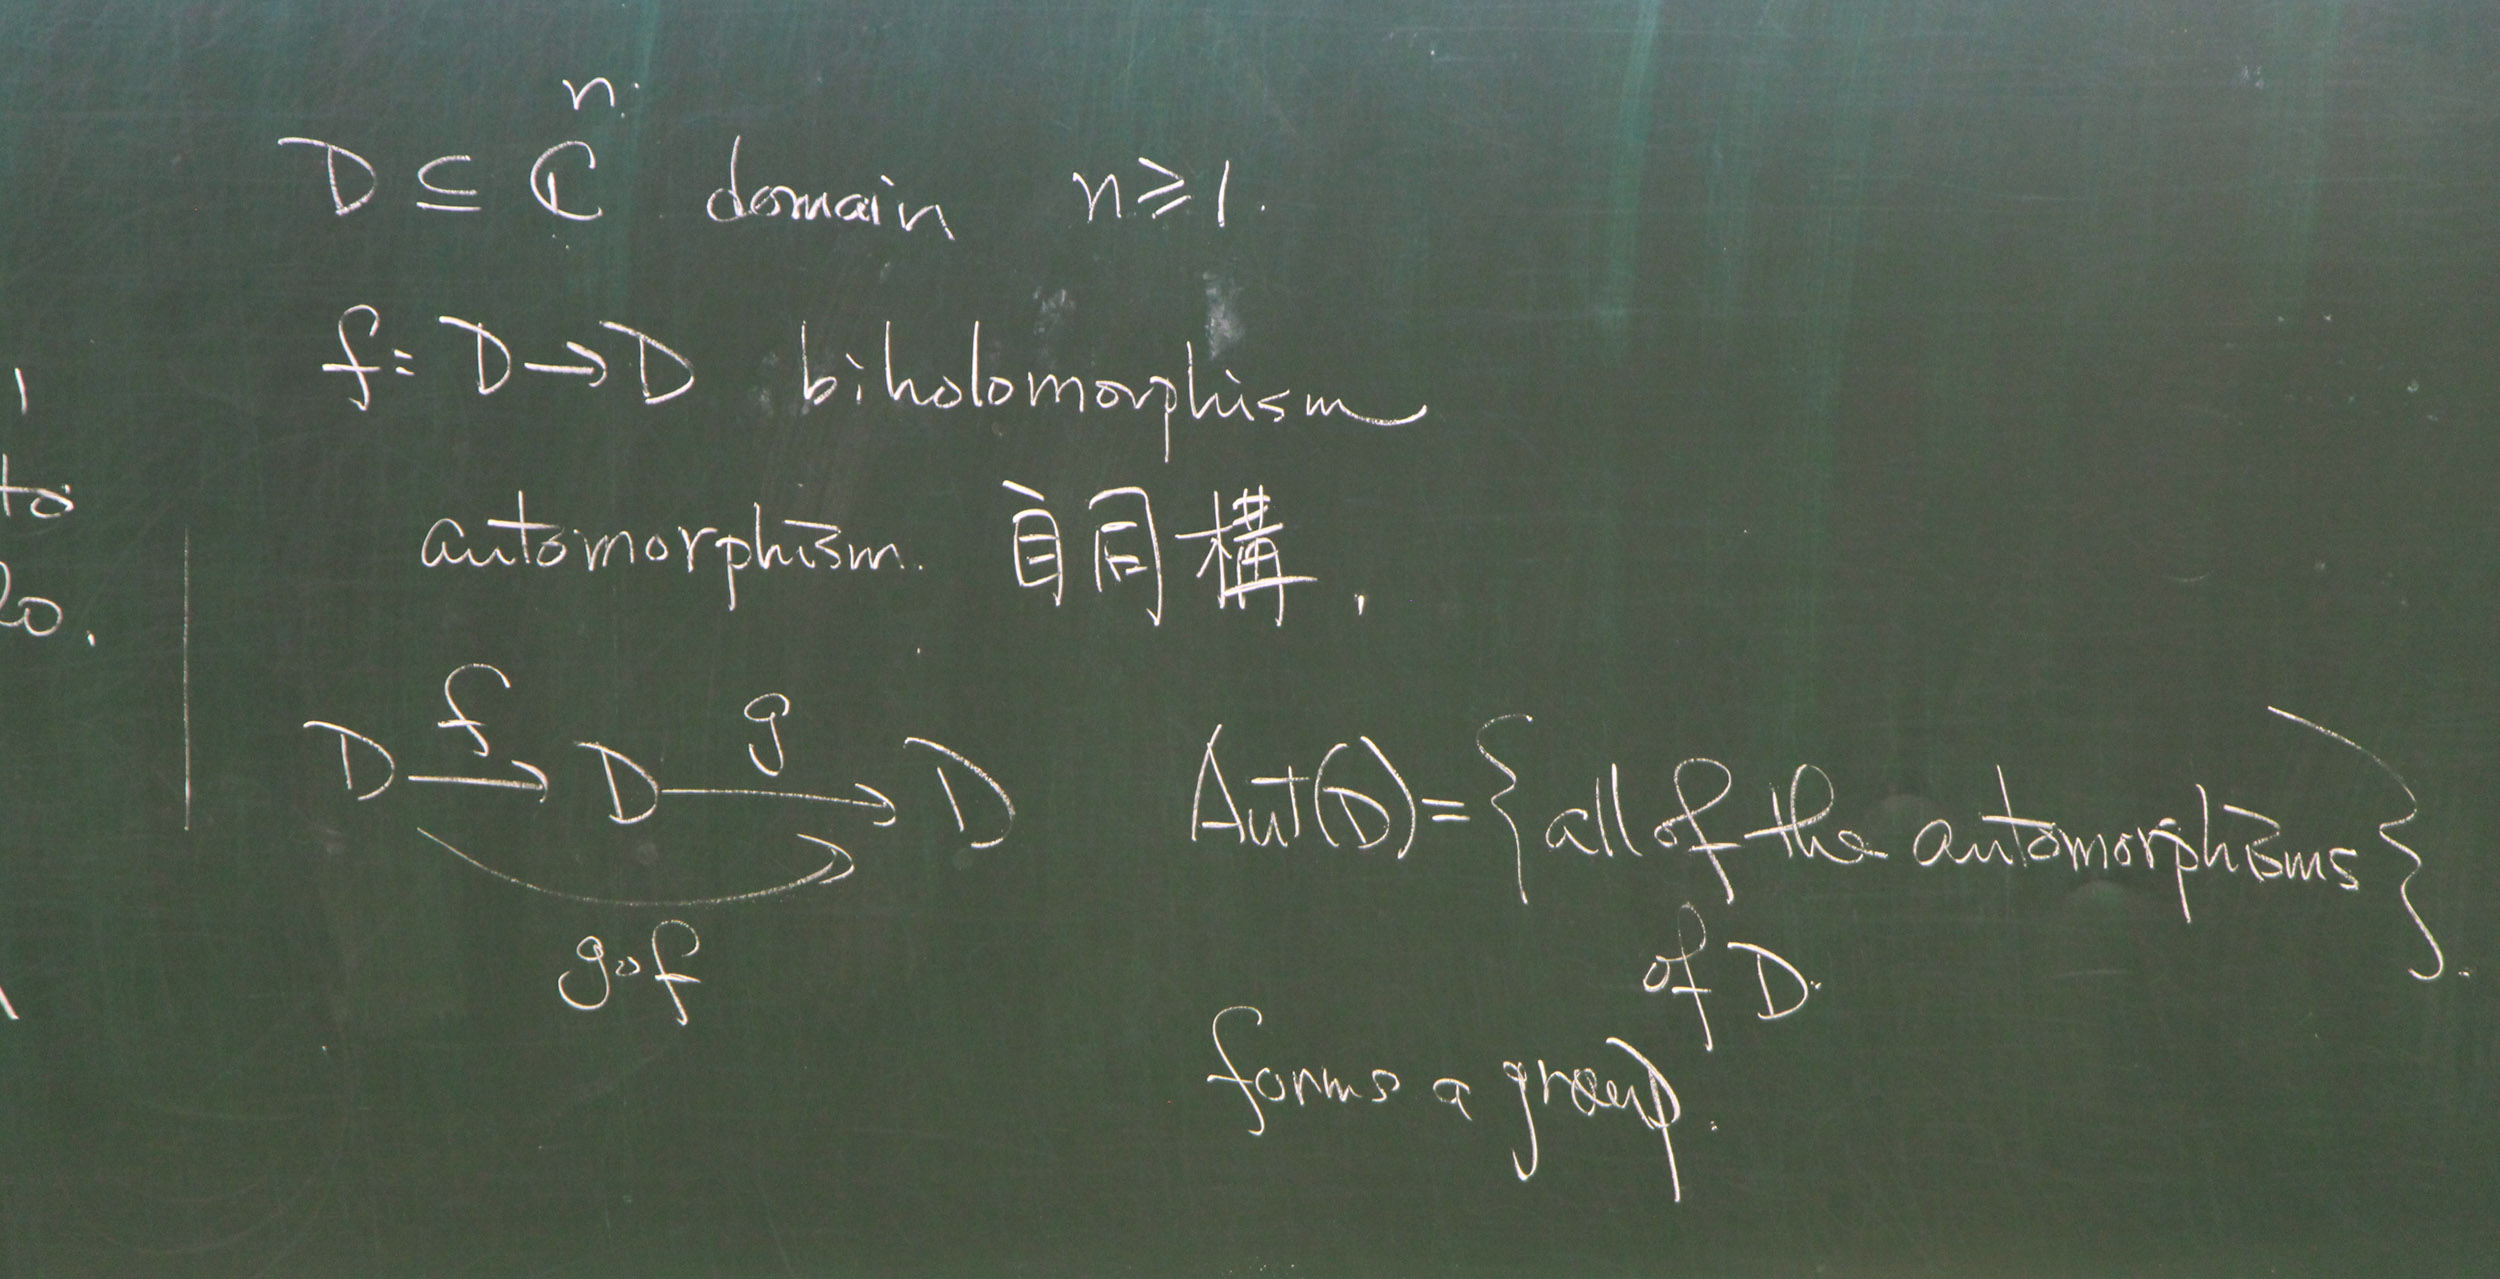 D ⊆ ℂⁿ domain n≥1.
f: D→D biholomorphism
automorphism. 自同構.
D →f D →g D
g∘f
Aut(D)={all of the automorphisms of D}.
forms a group.
to